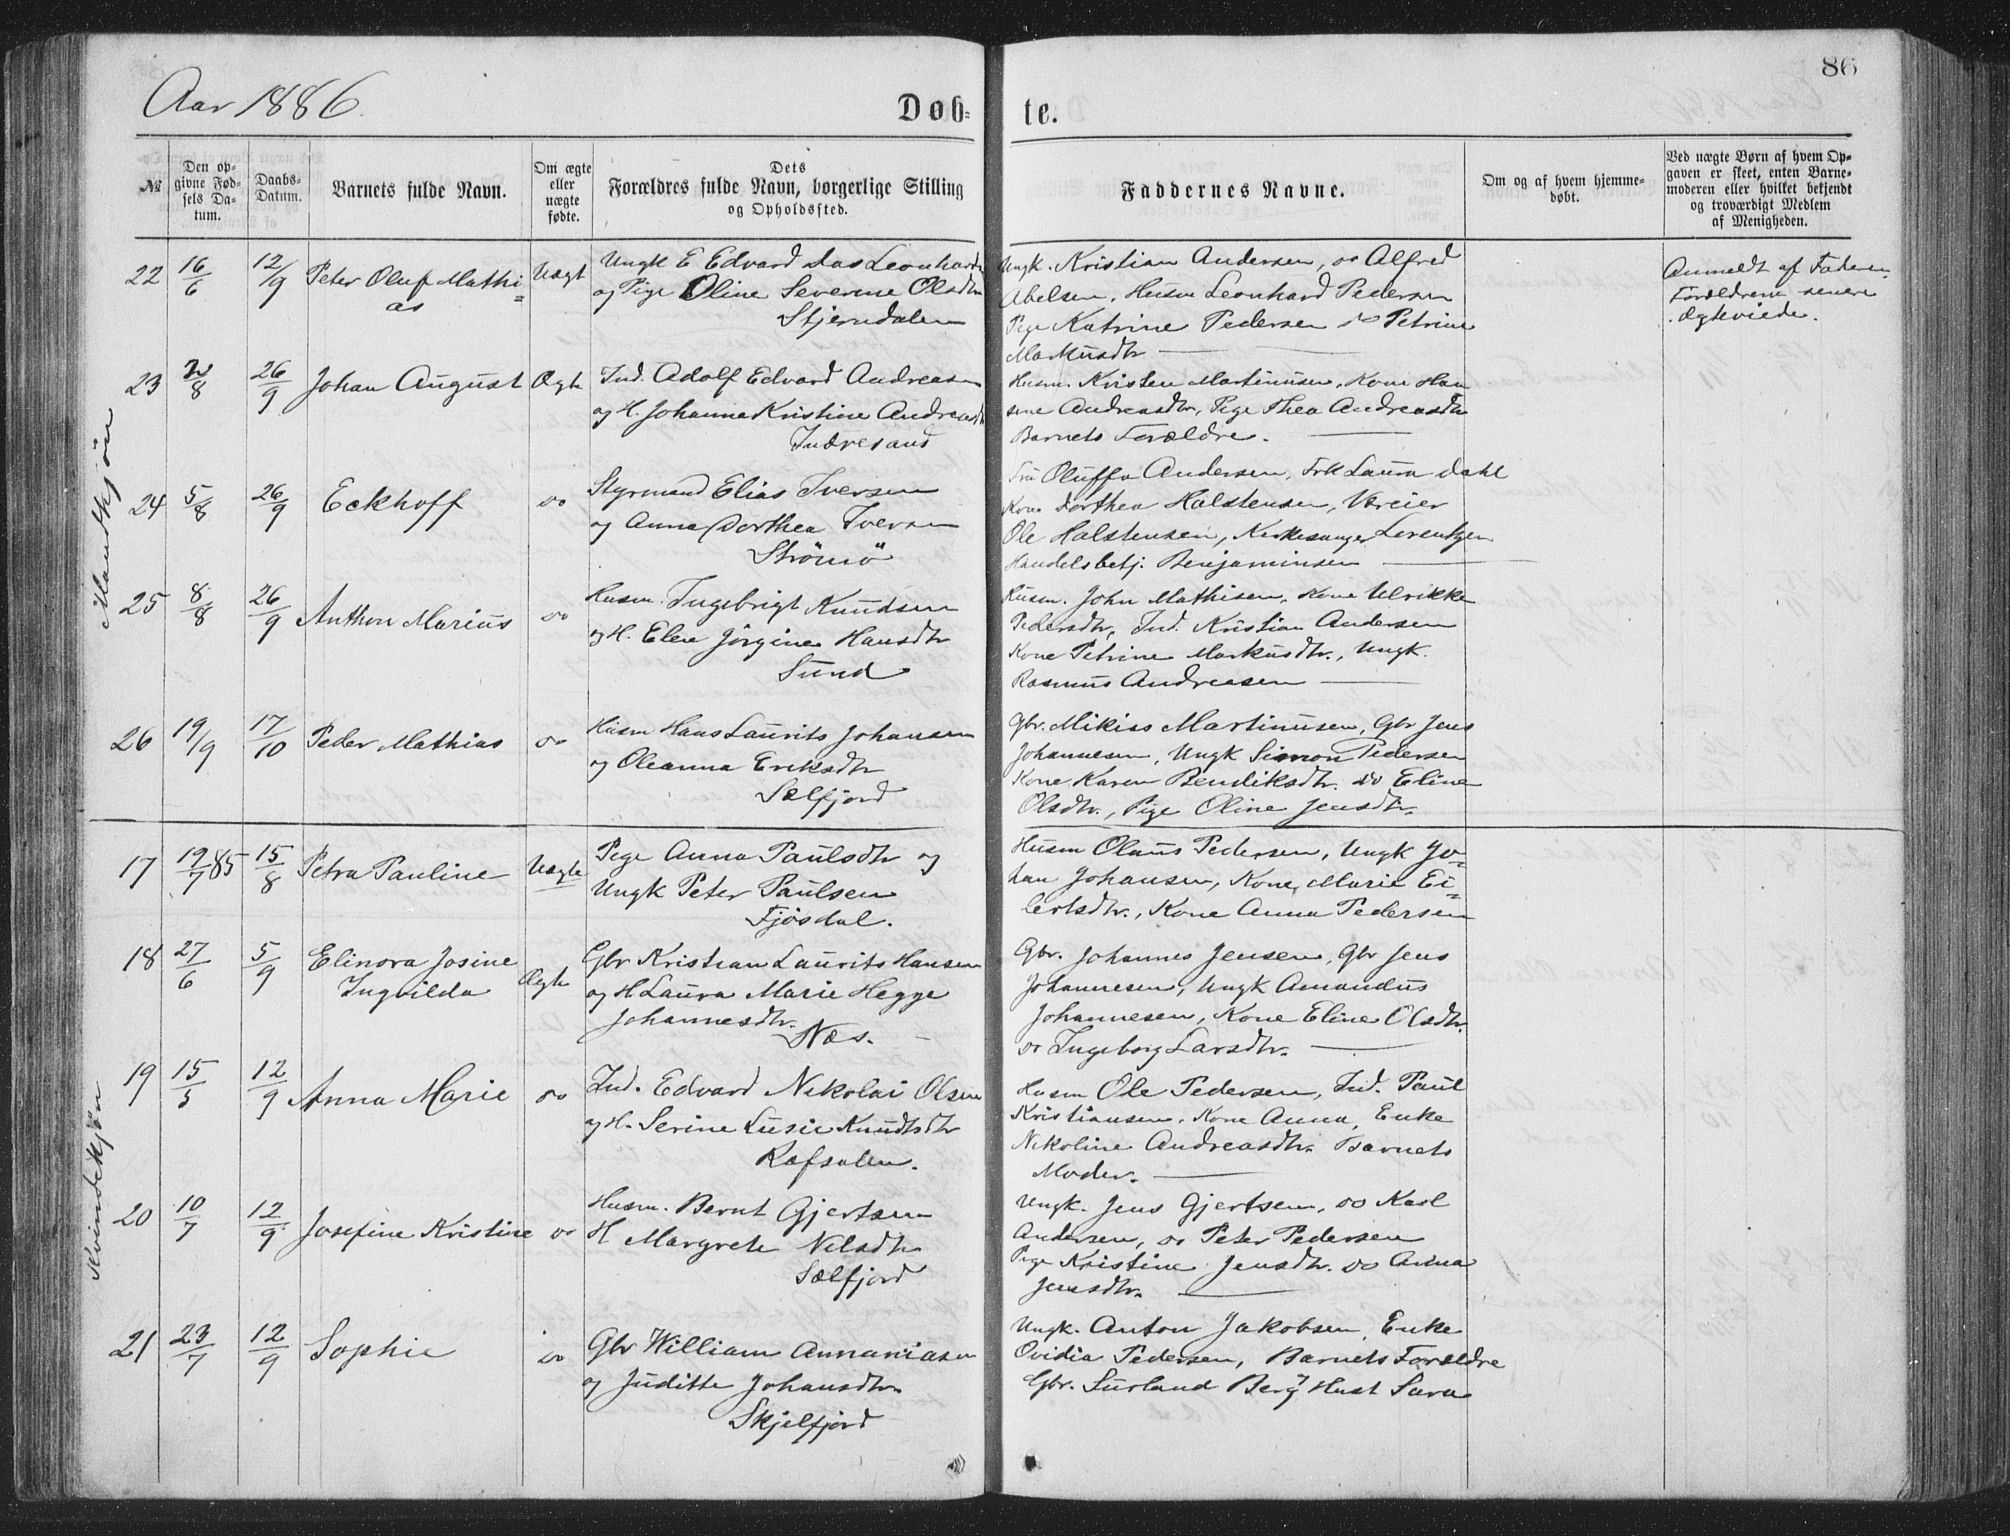 Aar 1886.
Døb-
te.
86
№
Den op-
givne Fød-
sels Da-
tum.
Daabs-
Datum.
Barnets fulde Navn.
Om ægte
eller
uægte
fødte.
Dets
Forældres fulde Navn, borgerlige Stilling
og Opholdssted.
Faddernes Navne.
Om og af hvem hjemme-
døbt.
Ved uægte Børn af hvem Op-
gaven er skeet, enten Barne-
moderen eller hvilket bekjendt
og troværdigt Medlem
af Menigheden.
Mandkjøn
22 16/6 12/9 Peter Oluf Mathi-
as
Uægt
Ungk E Edvard Leonhard
og Pige Oline Severine Olsdtr
Stjerndalen
Ungk. Kristian Andersen, do Alfred
Abelsen, Husm Leonhard Pedersen
Pige Katrine Pedersen do Petrine
Markusdtr
Anmeldt af Faderen
Forældrene senere
ægteviede.
23 /8 26/9 Johan August Ægte
Ind. Adolf Edvard Andreasen
og H. Johanna Kristine Andreasdtr
Indresand
Husm. Kristen Martinusen, Kone Han
sine Andreasdtr, Pige Thea Andreasdtr
Barnets Forældre.
24 5/8 26/9 Eckhoff do
Styrmand Elias Iversen
og Anna Dorthea Iversen
Strömö
Fru Oluffa Andersen, Frk Laura Dahl
Kone Dorthea Halstensen, Væeier
Ole Halstensen, Kirkesanger Lorentzen
Handelsbetj. Benjaminsen
25 8/8 26/9 Anthon Marius do
Husm. Ingebrigt Knudsen
og H. Elen Jörgine Hansdtr
Sund
Husm. John Mathisen, Kone Ulrikke
Pedersdtr, Ind. Kristian Andersen
Kone Petrine Markusdtr., Ungk.
Rasmus Andreasen
26 19/9 17/10 Peder Mathias do
Husm Hans Laurits Johansen
og Oleanna Eriksdtr
Sælfjord
Gbr. Mikias Martinusen, Gbr Jens
Johannesen, Ungk Simon Pedersen
Kone Karen Bendiksdtr. do Eline
Olsdtr., Pige Oline Jensdtr.
Kvindekjøn
17 19/7 85 15/8 Petra Pauline Uægte
Pige Anna Paulsdtr og
Ungk Peter Paulsen
Fjøsdal.
Husm Olaus Pedersen, Ungk Jo-
han Johansen, Kone, Marie Ei-
lertsdtr., Kone Anna Pedersen
18 27/6 5/9 Elinora Josine
Ingvilda
Ægte
Gbr Kristian Laurits Hansen
og H Laura Marie Hegge
Johannesdtr.
Næs.
Gbr. Johannes Jensen, Gbr Jens
Johannesen, Ungk Amandus
Johannesen, Kone Eline Olsdtr.
do Ingeborg Larsdtr.
19 15/5 12/9 Anna Marie do
Ind. Edvard Nikolai Olsen
og H. Serine Lusie Knudtsdtr
Rafsalen.
Husm Ole Pedersen, Ind. Paul
Kristiansen, Kone Anna, Enke
Nikoline Andreasdtr. Barnets
Moder.
20 10/7 12/9 Josefine Kristine do
Husm. Bernt Gjertsen
H Margrete Nilsdtr
Sælfjord
Ungk. Jens Gjertsen, do Karl
Andersen, do Peter Pedersen
Pige Kristine Jensdtr. do Anna
Jensdtr.
21 23/7 12/9 Sophie do
Gbr William Annaniasen
og Juditte Johansdtr.
Skjelfjord
Ungk. Anton Jakobsen, Enke
Ovidia Pedersen, Barnets Forældre
Gbr. Surland Berg, Hust Sara